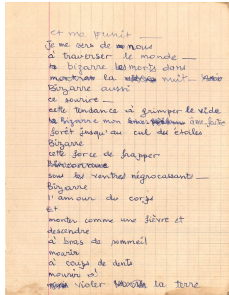 et me punit
Je me sers de nous
à traverser le monde
bizarre les morts dans
la nuit
Bizarre aussi
ce sourire
cette tendance à grimper le vide
Bizarre mon âme faite
forêt jusqu'au cul de étoiles
Bizarre
cette force de frapper
sous les ventres négrocassants
Bizarre
l'amour du corps
Et
monter comme une fièvre et
descendre
à bras de sommeil
mourir
à coups de dents
mourir à
violer la terre